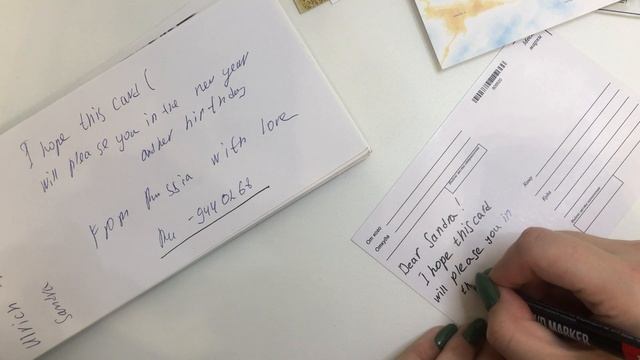 I hope this card (
will please you in the new year
ander birthday
From Russia with love
Ru -9440268
Sandra
Ulrich
От кого
Откуда
Кому
Куда
Dear Sandra!
I hope this card
will please you in
th
MARKER